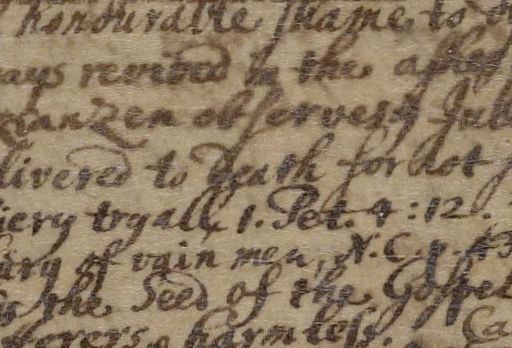 honourable shame to
revived in the ashes
anzen observes
livered to Death for not
iery tryall 1. Pet. 4: 12.
of vain men, N. C. p.
the Seed of the Gospel
harmless. Ca